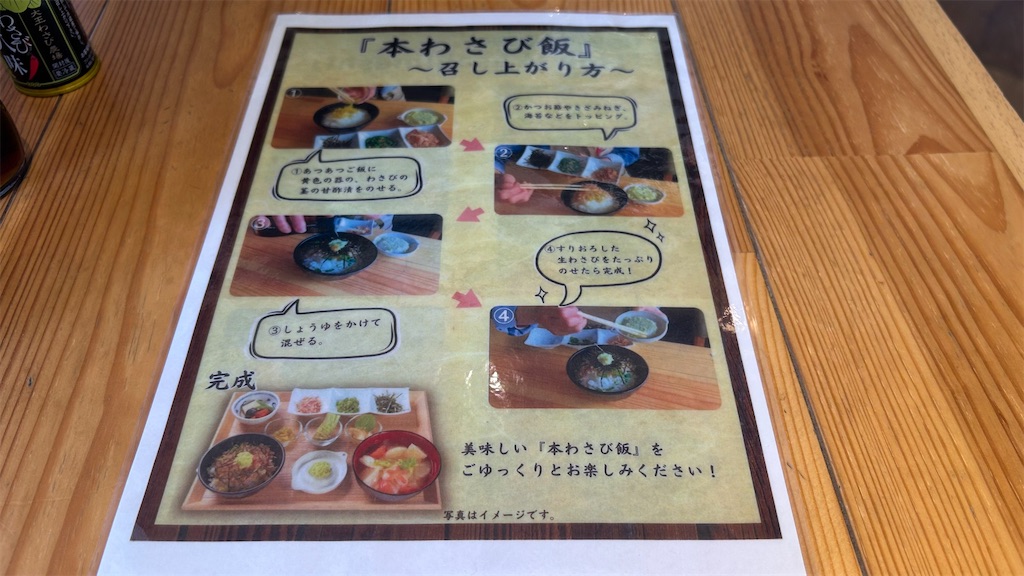 『本わさび飯』
～召し上がり方～
①あつあつご飯に
黄色の器の、わさびの
茎の甘酢漬をのせる。
②かつお節やきざみねぎ、
海苔などをトッピング。
②
③しょうゆをかけて
混ぜる。
④すりおろした
生わさびをたっぷり
のせたら完成！
④
完成
美味しい『本わさび飯』を
ごゆっくりとお楽しみください！
写真はイメージです。
わさび
味